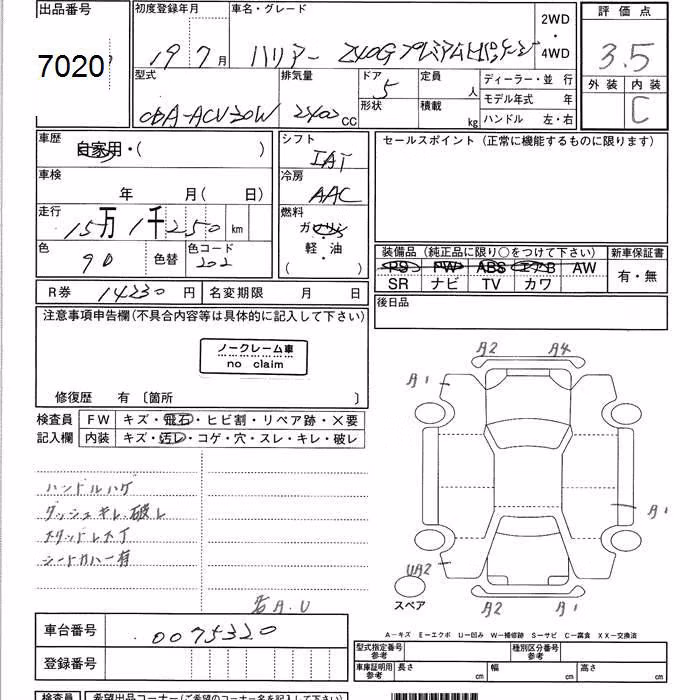 出品番号
7020
初度登録年月
19 7 月
車名・グレード
ハリアー 240G プレミアム
2WD
・
4WD
評価点
3.5
外装 内装
C
型式
CBA-ACU30W
排気量
2400 CC
ドア
5
形状
定員
人
積載
kg
ディーラー・並行
モデル年式 年
ハンドル 左・右
車歴
自家用・( )
シフト
IAT
セールスポイント (正常に機能するものに限ります)
車検
年 月( 日)
冷房
AAC
走行
15万 1千 250 km
燃料
ガソリン
・
軽・油
( )
色
90
色替
色コード
202
装備品 (純正品に限り○をつけて下さい)
新車保証書
PS PW ABS エアB AW
有・無
SR ナビ TV カワ
R券 14230 円
名変期限 月 日
後日品
注意事項申告欄(不具合内容等は具体的に記入して下さい)
ノークレーム車
no claim
修復歴 有 〔箇所 〕
検査員
記入欄
FW キズ・飛石・ヒビ割・リペア跡・×要
内装 キズ・汚レ・コゲ・穴・スレ・キレ・破レ
ハンドルハゲ
ダッシュキレ、破レ
シートカバー有
各A.U
A2 A4
A1
A1
UA2
A2 A1
スペア
車台番号 0075320
登録番号
A-キズ E-エクボ U-凹み W-補修跡 S-サビ C-腐食 XX-交換済
型式指定番号
参考
種別区分番号
参考
車庫証明用
参考
長さ cm 幅 cm 高さ cm
検査員
希望出品コーナー(ご希望のコーナー名を記入下さい)